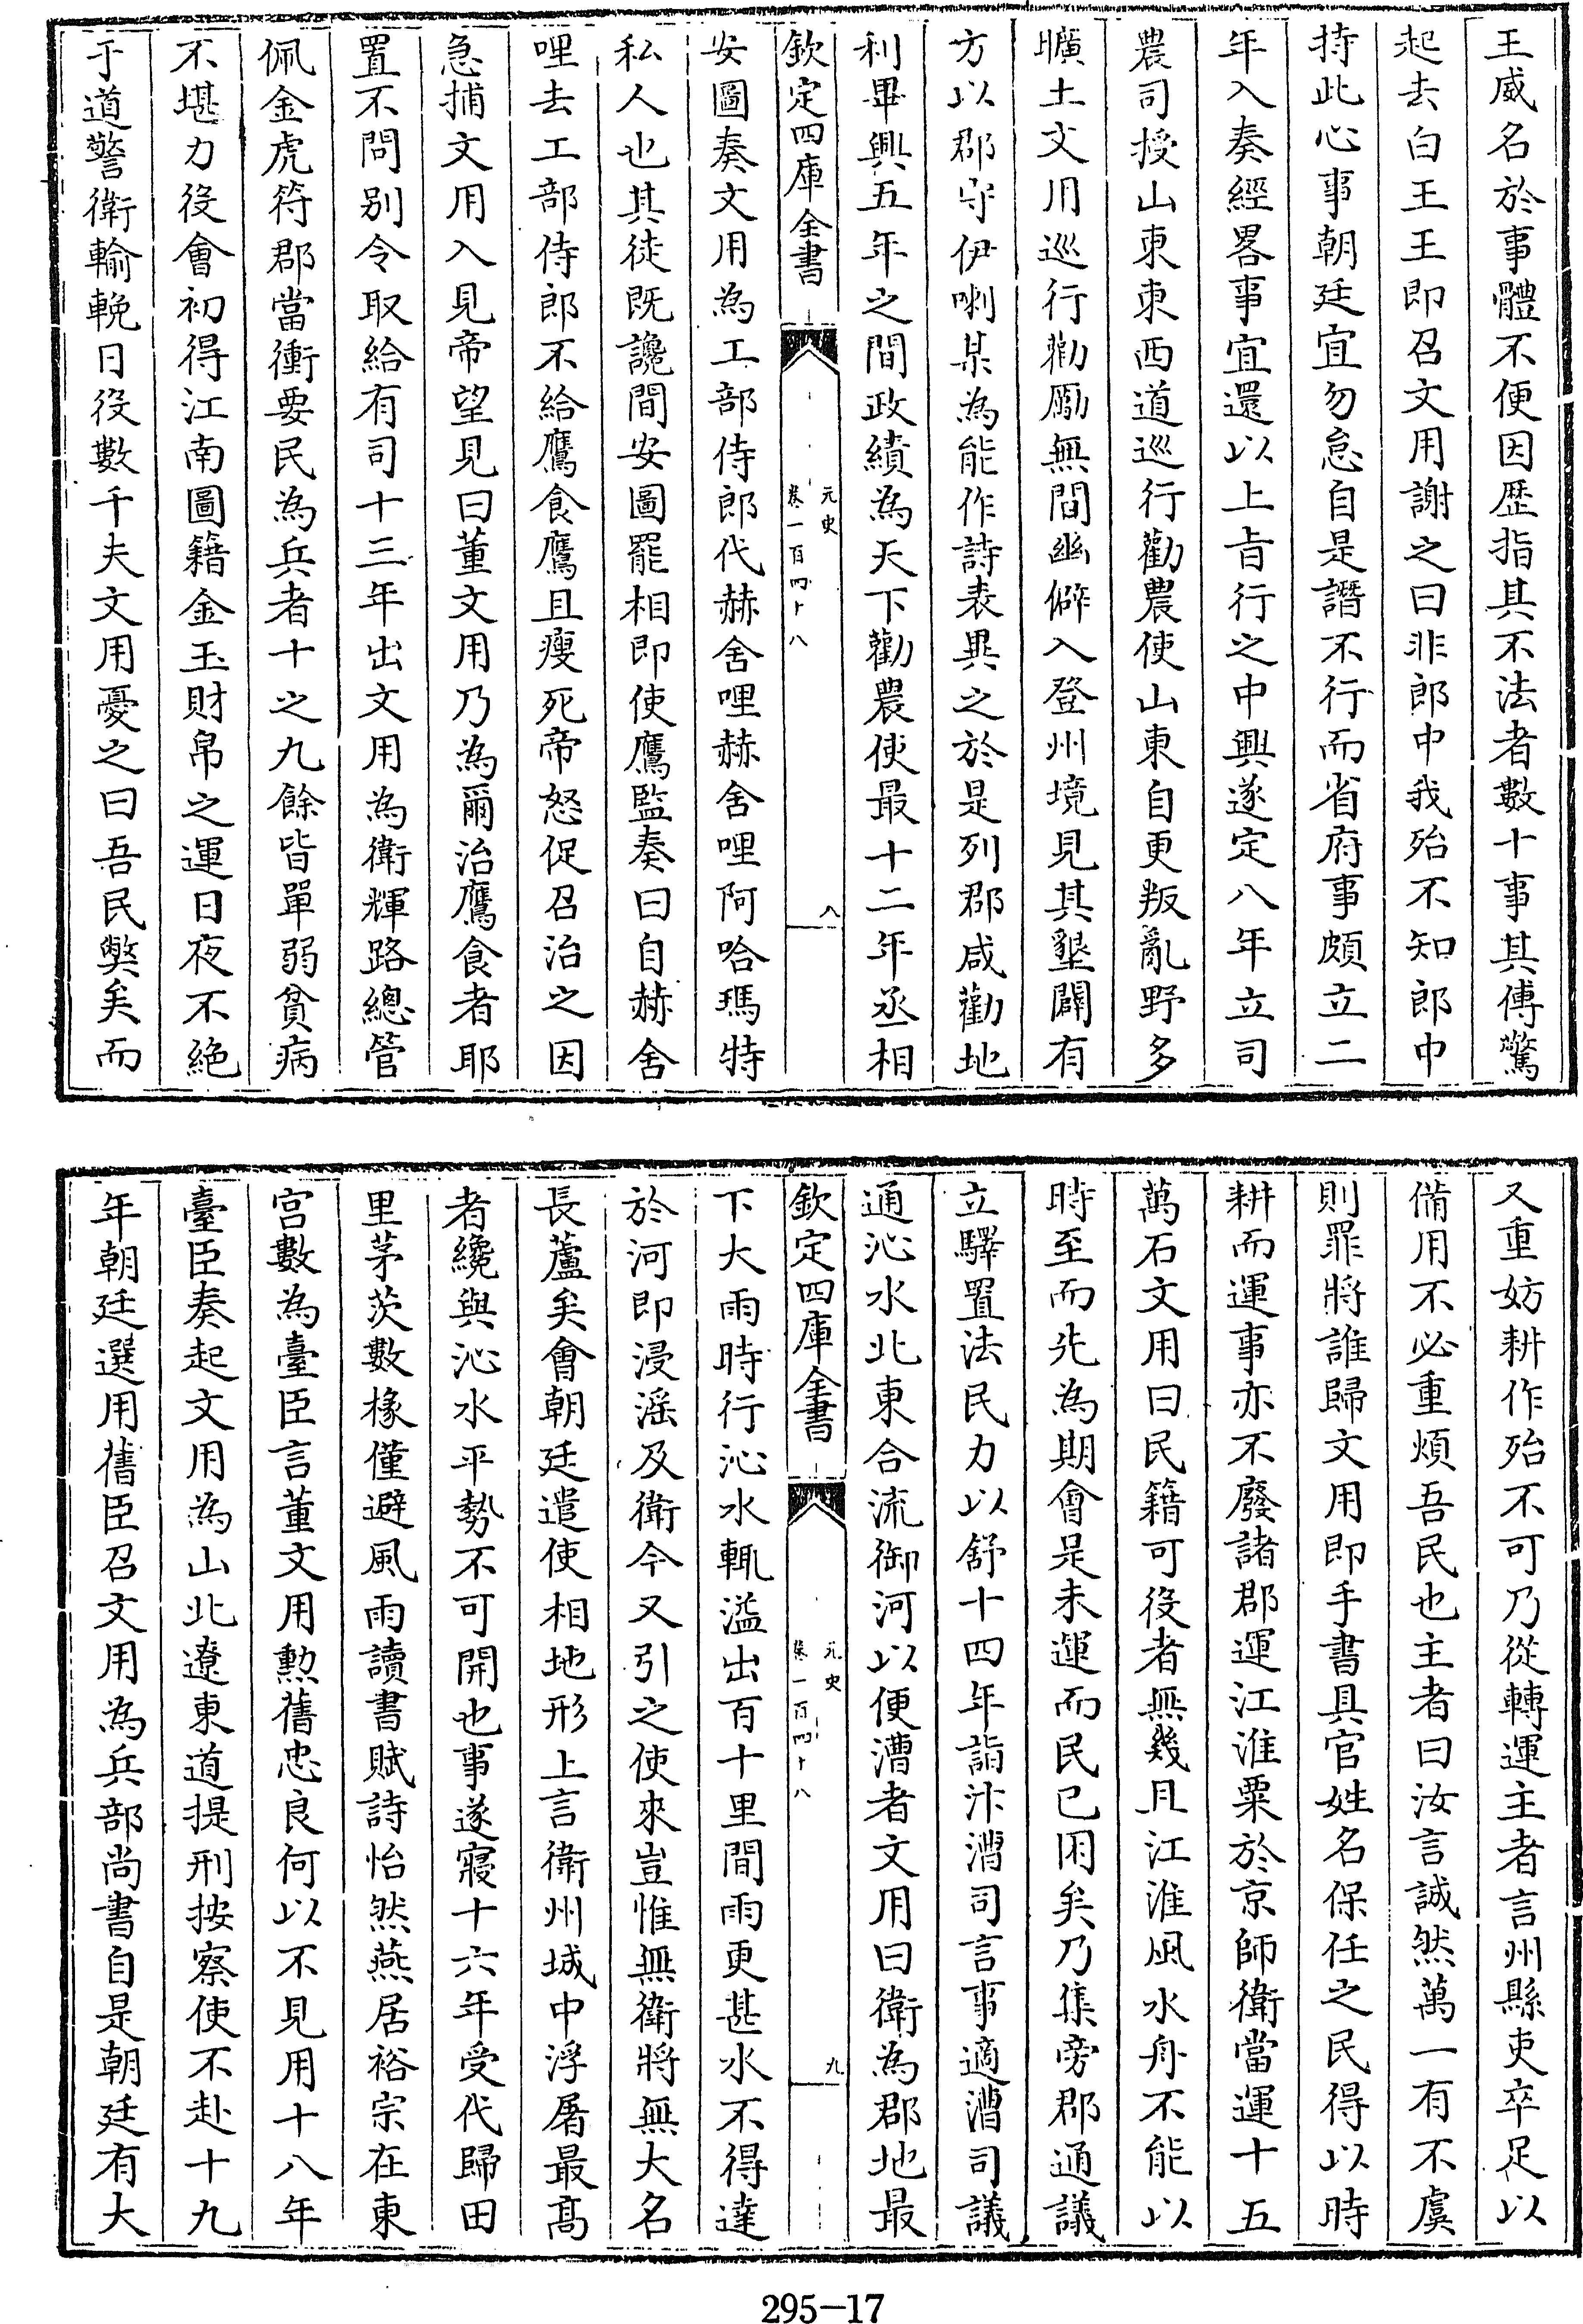 王威名於事體不便因歴指其不法者數十事其傅驚
起去白王王即召文用謝之曰非郎中我殆不知郎中
持此心事朝廷宜勿怠自是譖不行而省府事頗立二
年入奏經畧事宜還以上㫖行之中興遂定八年立司
農司授山東東西道巡行勸農使山東自更叛亂野多
曠土文用巡行勸勵無間幽僻入登州境見其墾闢有
方以郡守伊喇某為能作詩表異之於是列郡咸勸地
利畢興五年之間政績為天下勸農使最十二年丞相
欽定四庫全書
元史
卷一百四十八
八
安圖奏文用為工部侍郎代赫舍哩赫舍哩阿哈瑪特
私人也其徒既讒間安圖罷相即使鷹監奏曰自赫舍
哩去工部侍郎不給鷹食鷹且瘦死帝怒促召治之因
急捕文用入見帝望見曰董文用乃為爾治鷹食者耶
置不問别令取給有司十三年出文用為衛輝路總管
佩金虎符郡當衝要民為兵者十之九餘皆單弱貧病
不堪力役會初得江南圖籍金玉財帛之運日夜不絶
于道警衛輸輓日役數千夫文用憂之曰吾民獘矣而
又重妨耕作殆不可乃從轉運主者言州縣吏卒足以
備用不必重煩吾民也主者曰汝言誠然萬一有不虞
則罪將誰歸文用即手書具官姓名保任之民得以時
耕而運事亦不廢諸郡運江淮粟於京師衛當運十五
萬石文用曰民籍可役者無幾且江淮風水舟不能以
時至而先為期會是未運而民已困矣乃集旁郡通議
立驛置法民力以舒十四年詣汴漕司言事適漕司議
通沁水北東合流御河以便漕者文用曰衛為郡地最
欽定四庫全書
元史
卷一百四十八
九
下大雨時行沁水輒溢出百十里間雨更甚水不得達
於河即浸滛及衛今又引之使來豈惟無衛將無大名
長蘆矣會朝廷遣使相地形上言衛州城中浮屠最高
者纔與沁水平勢不可開也事遂寢十六年受代歸田
里茅茨數椽僅避風雨讀書賦詩怡然燕居裕宗在東
宫數為臺臣言董文用勲舊忠良何以不見用十八年
臺臣奏起文用為山北遼東道提刑按察使不赴十九
年朝廷選用舊臣召文用為兵部尚書自是朝廷有大
295-17